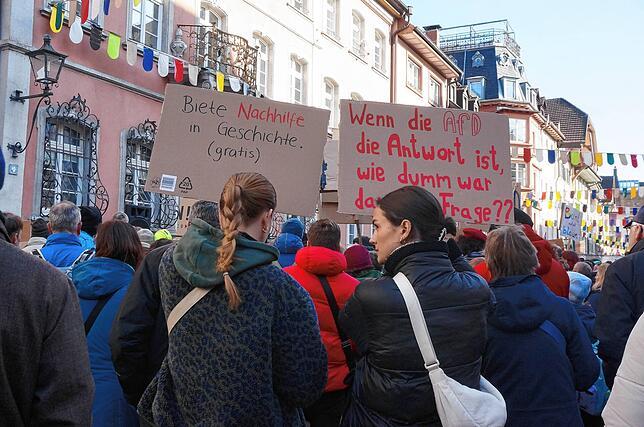 Biete Nachhilfe
in Geschichte.
(gratis)
Wenn die AfD
die Antwort ist,
wie dumm war
Frage??